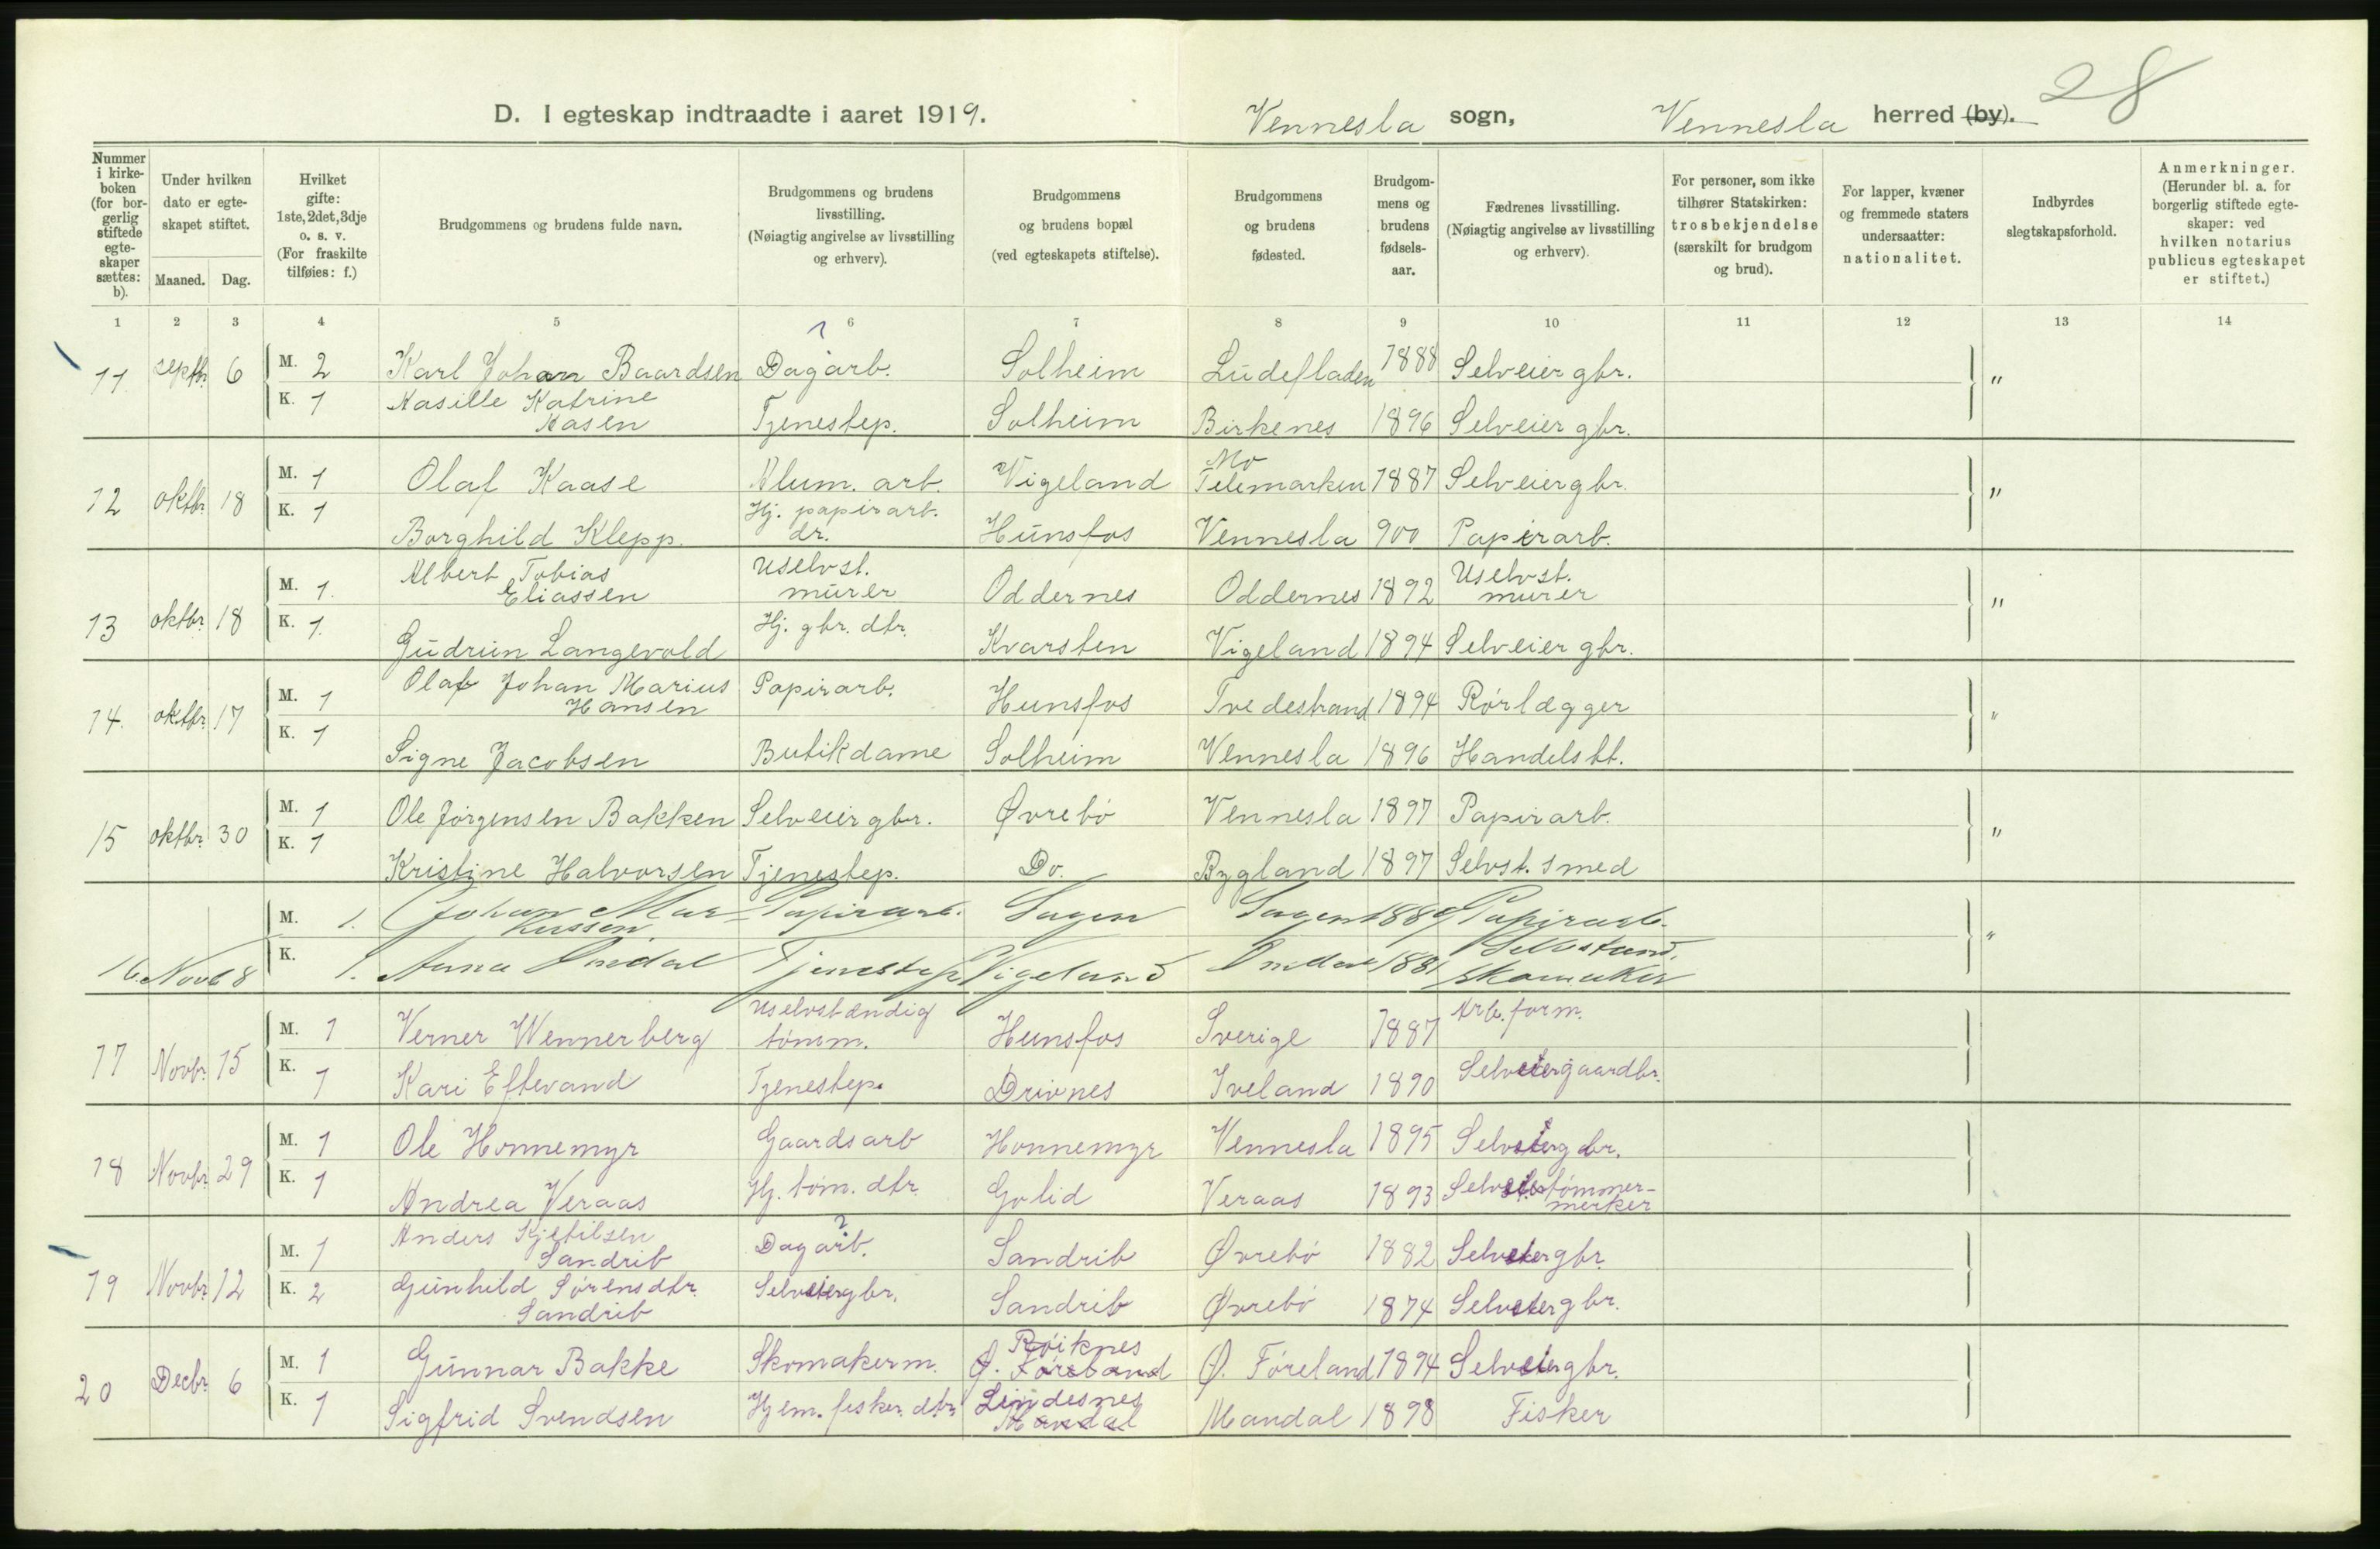 28
D. I egteskap indtraadte i aaret 1919. Vennesla sogn, Vennesla herred (by).
Nummer i kirke-boken (for bor-gerlig stiftede egte-skaper sættes: b).
Under hvilken dato er egte-skapet stiftet.
Maaned. Dag.
Hvilket gifte: 1ste, 2det, 3dje o. s. v. (For fraskilte tilføies: f.)
Brudgommens og brudens fulde navn.
Brudgommens og brudens livsstilling. (Nøiagtig angivelse av livsstilling og erhverv).
Brudgommens og brudens bopæl (ved egteskapets stiftelse).
Brudgommens og brudens fødested.
Brudgom-mens og brudens fødsels-aar.
Fædrenes livsstilling. (Nøiagtig angivelse av livsstilling og erhverv).
For personer, som ikke tilhører Statskirken: trosbekjendelse (særskilt for brudgom og brud).
For lapper, kvæner og fremmede staters undersaatter: nationalitet.
Indbyrdes slegtskapsforhold.
Anmerkninger. (Herunder bl. a. for borgerlig stiftede egte-skaper: ved hvilken notarius publicus egteskapet er stiftet.)
1 2 3 4 5 6 7 8 9 10 11 12 13 14
11 septbr. 6 M. 2 Karl Johan Baardsen Dagarb. Solheim Ludefladen 1888 Selveier gbr. "
K. 1 Aasille Katrine Aasen Tjenestep. Solheim Birkenes 1896 Selveier gbr.
12 oktbr. 18 M. 1 Olaf Kaase Alum. arb. Vigeland Mo Telemarken 1887 Selveier gbr. "
K. 1 Borghild Klepp. Hj. papirarb. dr. Hunsfos Vennesla 900 Papirarb.
13 oktbr. 18 M. 1. Albert Tobias Eliassen Uselvst. murer Oddernes Oddernes 1892 Uselvst. murer "
K. 1. Gudrun Langevold Hj. gbr. dtr. Kvarsten Vigeland 1894 Selveier gbr.
14. oktbr. 17 M. 1 Olaf Johan Marius Hansen Papirarb. Hunsfos Tvedestrand 1894 Rörlægger "
K. 1 Signe Jacobsen Butikdame Solheim Vennesla 1896 Handelsbt.
15 oktbr. 30 M. 1 Ole Jörgensen Bakken Selveier gbr. Øvrebö Vennesla 1897 Papirarb. "
K. 1 Kristine Halvorsen Tjenestep. Do. Bygland 1897 Selvst. smed
16. Novb 8 M. 1. Johan Markussen Papirarb. Sagen Sagen 1889 Papirarb. "
K. 1. Anna Omdal Tjenestep Vigeland Omdal 1881 Selvstænd. skomaker
17 Novbr. 15 M. 1 Verner Wennerberg Uselvstændig tömm. Hunsfos Sverige 1887 Arb. form.
K. 1 Kari Eftevand Tjenestep. Drivnes Iveland 1890 Selveiergaardbr.
18 Novbr. 29 M. 1 Ole Honnemyr Gaardsarb Honnemyr Vennesla 1895 Selveiergbr.
K. 1 Andrea Veraas Hj. töm. dtr. Golid Veraas 1893 tömmer-merker
19 Novbr. 12 M. 1 Anders Kjetilsen Sandrib Dagarb. Sandrib Øvrebö 1882 Selveiergbr.
K. 2 Gunhild Sörensdtr. Sandrib Selveiergbr. Sandrib Øvrebö 1874 Selveiergbr.
20 Decbr. 6 M. 1 Gunnar Bakke Skomakerm. Röiknes Ø. Föreland Ø. Föreland 1894 Selveiergbr.
K. 1 Sigfrid Svendsen Hjem. fisker. dtr. Lindesnes Mandal Mandal 1898 Fisker